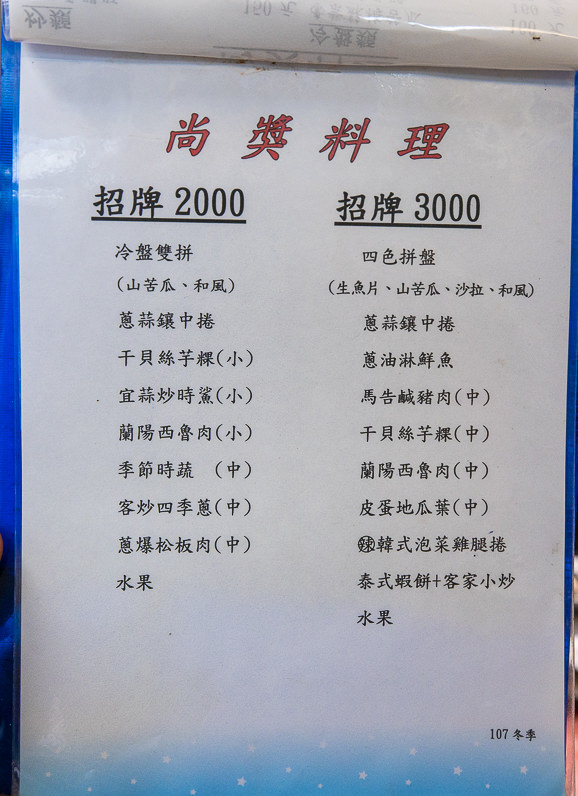 尚獎料理
招牌 2000
冷盤雙拼
(山苦瓜、和風)
蔥蒜鑲中捲
干貝絲芋粿(小)
宜蒜炒時鯊(小)
蘭陽西魯肉(小)
季節時蔬 (中)
客炒四季蔥(中)
蔥爆松板肉(中)
水果
招牌 3000
四色拼盤
(生魚片、山苦瓜、沙拉、和風)
蔥蒜鑲中捲
蔥油淋鮮魚
馬告鹹豬肉(中)
干貝絲芋粿(中)
蘭陽西魯肉(中)
皮蛋地瓜葉(中)
韓式泡菜雞腿捲
泰式蝦餅+客家小炒
水果
107 冬季